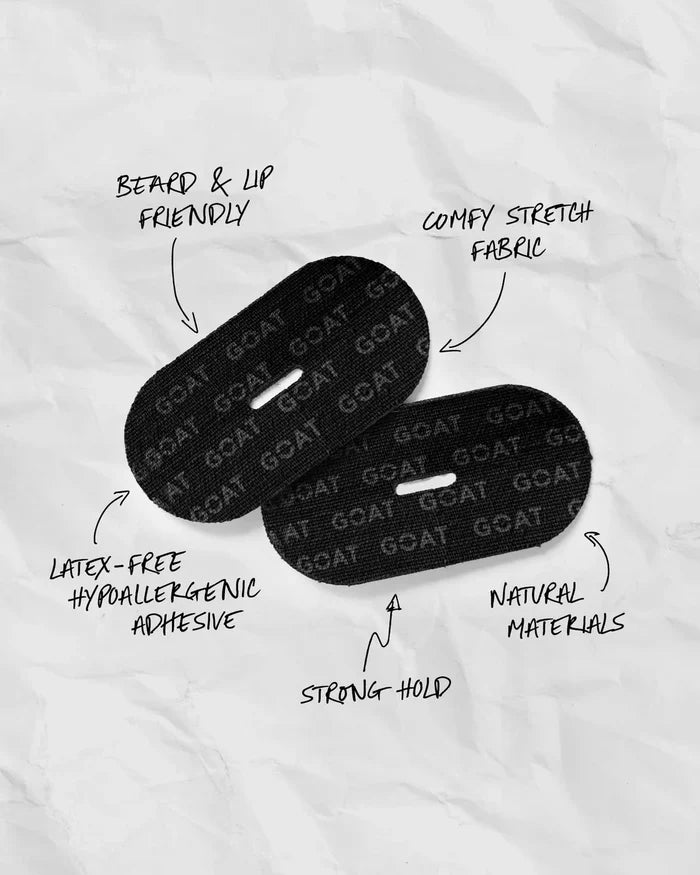 BEARD & LIP
FRIENDLY
COMFY STRETCH
FABRIC
GOAT GOAT GOAT
GOAT GOAT GOAT GO
AT GOAT GOAT GOAT
GOAT GOAT GOAT G
GOAT GOAT
GOAT GOAT GOAT GO
AT GOAT GOAT GOAT
GOAT GOAT GOAT
LATEX-FREE
HYPOALLERGENIC
ADHESIVE
NATURAL
MATERIALS
STRONG HOLD